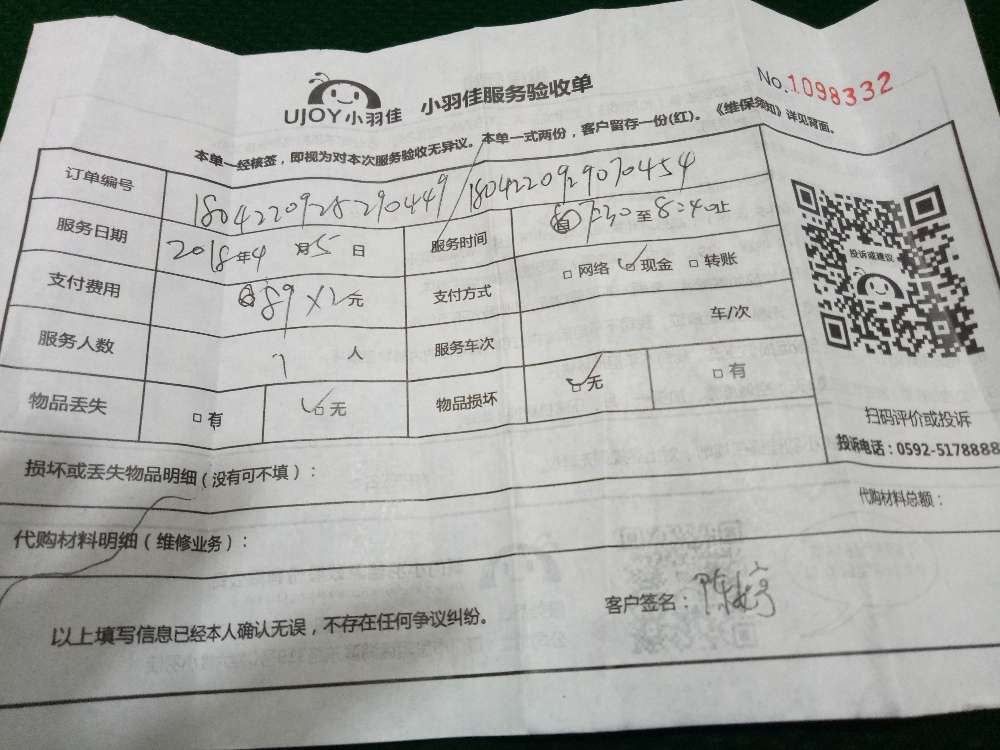 UJOY小羽佳 小羽佳服务验收单 No.1098332
本单一经核签，即视为对本次服务验收无异议。本单一式两份，客户留存一份(红)。《维保须知》详见背面。
订单编号 1804220928290449 1804220929070454
服务日期 2018年4月5日 服务时间 7:30至8:40止
支付费用 89×2元 支付方式 □网络 □现金 □转账
服务人数 1人 服务车次 车/次
物品丢失 □有 □无 物品损坏 □无 □有
投诉或建议
扫码评价或投诉
投诉电话：0592-5178888
损坏或丢失物品明细(没有可不填)：
代购材料明细(维修业务)： 代购材料总额：
以上填写信息已经本人确认无误，不存在任何争议纠纷。 客户签名：陈婷